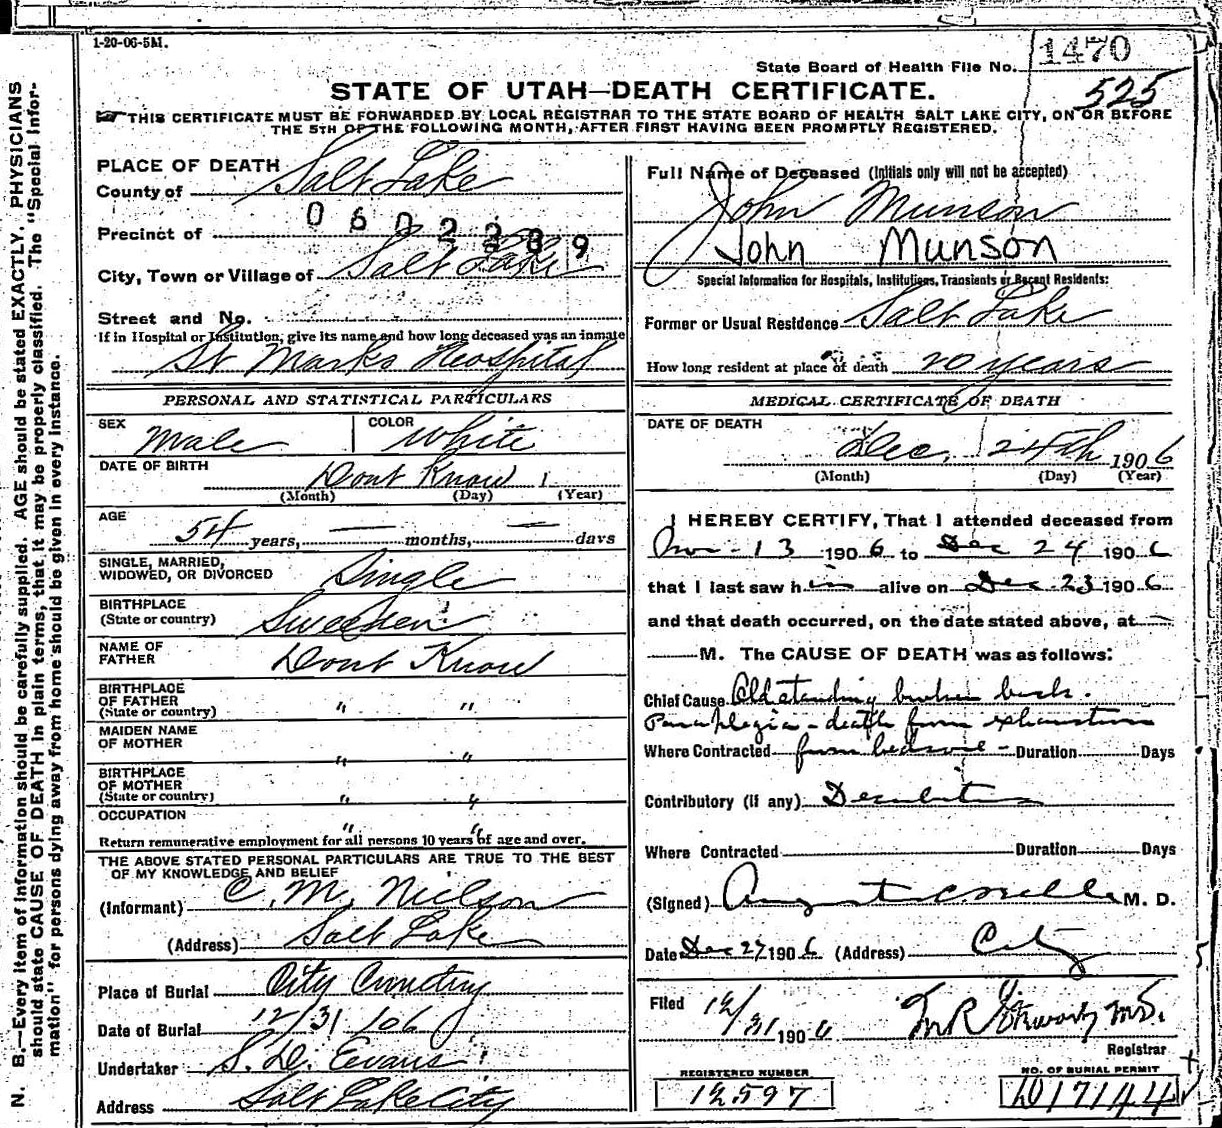 1-20-06-5M.
1470
State Board of Health File No.
525
STATE OF UTAH—DEATH CERTIFICATE.
THIS CERTIFICATE MUST BE FORWARDED BY LOCAL REGISTRAR TO THE STATE BOARD OF HEALTH SALT LAKE CITY, ON OR BEFORE
THE 5TH OF THE FOLLOWING MONTH, AFTER FIRST HAVING BEEN PROMPTLY REGISTERED.
PLACE OF DEATH
County of Salt Lake
Precinct of
City, Town or Village of Salt Lake
Street and No.
If in Hospital or Institution, give its name and how long deceased was an inmate
St Marks Hospital
Full Name of Deceased (Initials only will not be accepted)
John Munson
John Munson
Special Information for Hospitals, Institutions, Transients or Recent Residents:
Former or Usual Residence Salt Lake
How long resident at place of death 20 years
PERSONAL AND STATISTICAL PARTICULARS
SEX Male COLOR White
DATE OF BIRTH Dont Know 1
(Month) (Day) (Year)
AGE
54 years, — months, — days
SINGLE, MARRIED,
WIDOWED, OR DIVORCED Single
BIRTHPLACE
(State or country) Sweeden
NAME OF
FATHER Dont Know
BIRTHPLACE
OF FATHER
(State or country) " "
MAIDEN NAME
OF MOTHER " "
BIRTHPLACE
OF MOTHER
(State or country) " "
OCCUPATION " "
Return remunerative employment for all persons 10 years of age and over.
THE ABOVE STATED PERSONAL PARTICULARS ARE TRUE TO THE BEST
OF MY KNOWLEDGE AND BELIEF
(Informant) C. M. Nielson
(Address) Salt Lake
Place of Burial City Cemetry
Date of Burial 12/31/06
Undertaker S. D. Evans
Address Salt Lake City
MEDICAL CERTIFICATE OF DEATH
DATE OF DEATH
Dec. 24th 1906
(Month) (Day) (Year)
I HEREBY CERTIFY, That I attended deceased from
Nov - 13 1906 to Dec 24 1906
that I last saw him alive on Dec 23 1906
and that death occurred, on the date stated above, at —
M. The CAUSE OF DEATH was as follows:
Chief Cause Old standing broken back.
Paraplegia - death from exhaustion
Where Contracted from bedsore - Duration Days
Contributory (if any) Decubitus
Where Contracted Duration Days
(Signed) August M. D.
Date Dec 27 1906 (Address) City
Filed 12/31 1906 M.D.
Registrar
REGISTERED NUMBER
12597
NO. OF BURIAL PERMIT
D17144
N. B.—Every item of information should be carefully supplied. AGE should be stated EXACTLY. PHYSICIANS
should state CAUSE OF DEATH in plain terms, that it may be properly classified. The "Special Infor-
mation" for persons dying away from home should be given in every instance.